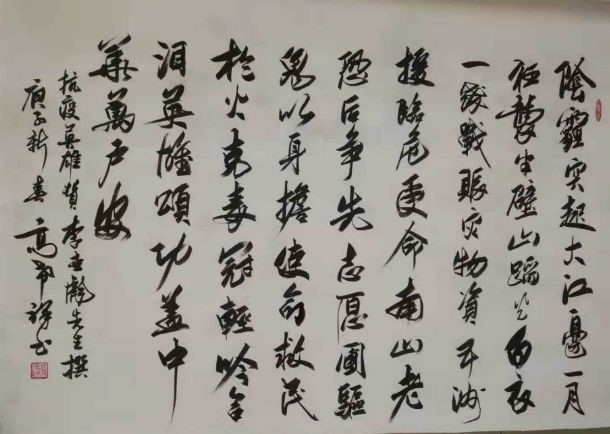 陰霾突起大江邊一月
狂襲半壁山蹈火白衣
一线戰賑灾物資五洲
援臨危受命南山老
恐后争先志愿團驅
鬼以身擔使命救民
於火克毒冠輕吟含
泪英雄頌功蓋中
華萬户安
抗疫英雄贊李先生撰
庚子新春高希祥书